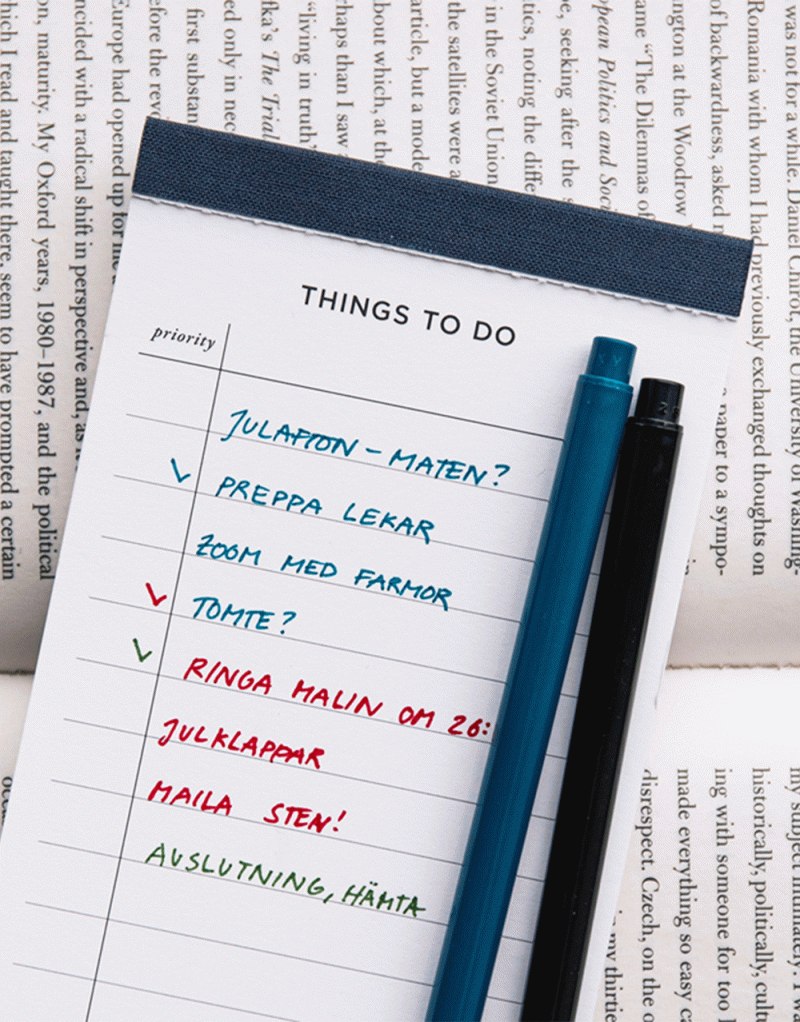 THINGS TO DO
priority
JULAFTON - MATEN?
PREPPA LEKAR
ZOOM MED FARMOR
TOMTE?
RINGA MALIN OM 26:
JULKLAPPAR
MAILA STEN!
AVSLUTNING, HÄMTA
was not for a while. Daniel Chirot, the University of Washing-
Romania with whom I had previously exchanged thoughts on
of backwardness, asked a paper to a sympo-
at the Woodrow in
“The Dilemmas of
Politics and
seeking after the
noting the
in the Soviet Union
the satellites were
article, but a
about which, at the
than I saw
“living in truth”
The Trial
only in
first
the
Europe had opened up for
with a radical shift in perspective and, as
maturity. My Oxford years, 1980–1987, and the political
I read and taught there, seem to have prompted a certain
my subject intimately. I
historically, politically,
ing with someone for too
made everything so easy
disrespect. Czech, on the
my